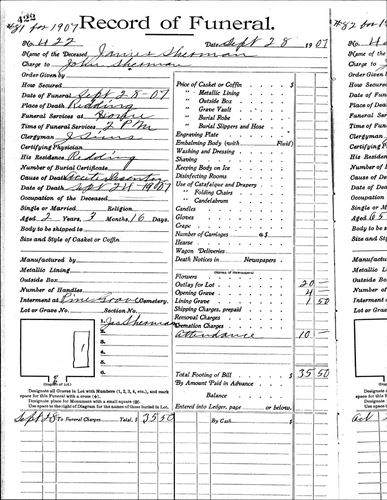 422
#81 for 1907
Record of Funeral.
No. 422 Date, Sept 28 1907
Name of the Deceased James Sherman
Charge to John Sherman
Order Given by
How Secured
Date of Funeral Sept 28-07
Place of Death Redding
Funeral Services at Home
Time of Funeral Services 2 PM
Clergyman J Sims
Certifying Physician
His Residence Redding
Number of Burial Certificate
Cause of Death Acute Dysentery
Date of Death Sept 24 1907
Occupation of the Deceased
Single or Married Religion
Aged 2 Years, 3 Months, 6 Days
Body to be shipped to
Size and Style of Casket or Coffin
Manufactured by
Metallic Lining
Outside Box
Number of Handles
Interment at Pine Grove Cemetery.
Lot or Grave No. Section No.
1. Jas Sherman
2.
3.
4.
5.
6.
1
(Diagram of Lot.)
Designate all Graves in Lot with Numbers (1, 2, 3, 4, etc.), and mark
space for this Funeral with a cross (+).
Designate place for Monument with a small square
Use space to the right of Diagram for the names of those buried in Lot.
Price of Casket or Coffin $
" Metallic Lining
" Outside Box
" Grave Vault
" Burial Robe
" Burial Slippers and Hose
Engraving Plate
Embalming Body (with Fluid)
Washing and Dressing
Shaving
Keeping Body on Ice
Disinfecting Rooms
Use of Catafalque and Drapery
" Folding Chairs
" Candelabrum
Candles
Gloves
Crape
Number of Carriages @$
Hearse
Wagon Deliveries
Death Notices in Newspapers
(Names of Newspapers)
Flowers
Outlay for Lot 20 —
Opening Grave 4
Lining Grave 1 50
Shipping Charges, prepaid
Removal Charges
Cremation Charges
Attendance 10 —
Total Footing of Bill $ 35 50
By Amount Paid in Advance
Balance
Entered into Ledger, page or below.
Sept 28 To Funeral Charges Total, $ 35 50 By Cash $